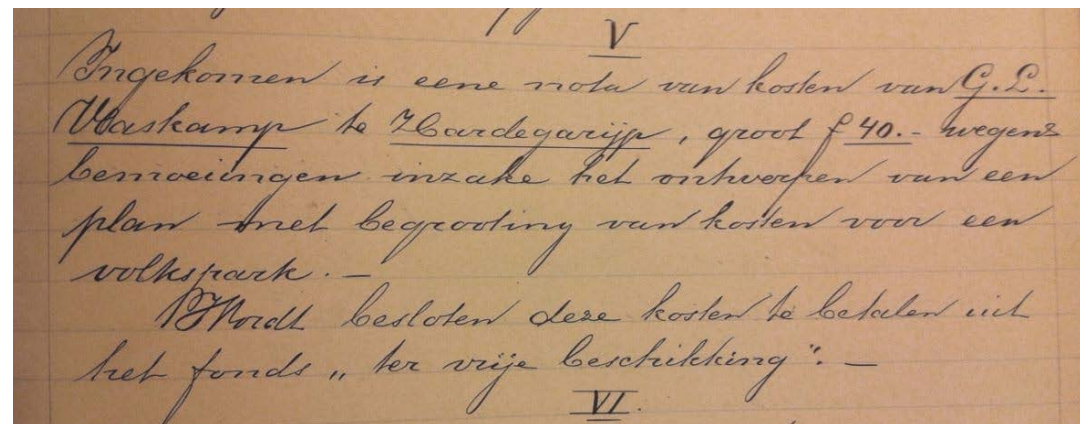 V
Ingekomen is eene nota van kosten van G. L.
Vlaskamp te Hardegarijp, groot f 40.- wegens
bemoeiingen inzake het ontwerpen van een
plan met begrooting van kosten voor een
volkspark. —
Wordt besloten deze kosten te betalen uit
het fonds „ ter vrije beschikking". —
VI.